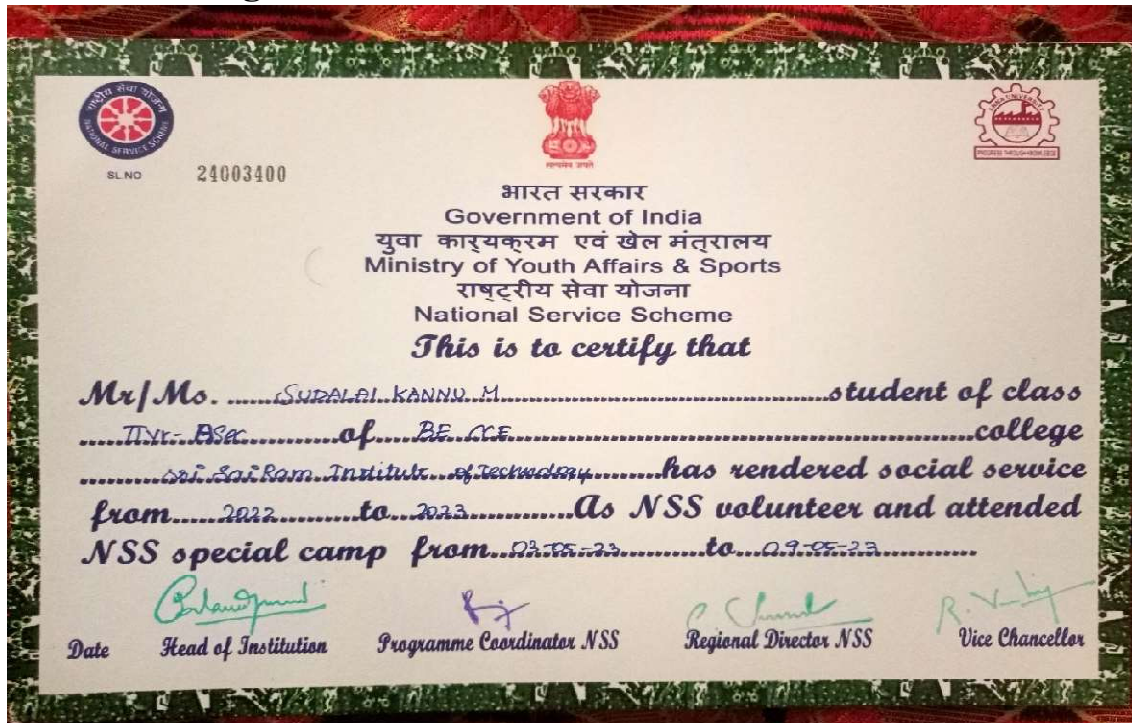 राष्ट्रीय सेवा योजना
NATIONAL SERVICE SCHEME
सत्यमेव जयते
PROGRESS THROUGH KNOWLEDGE
SL.NO 24003400
भारत सरकार
Government of India
युवा कार्यक्रम एवं खेल मंत्रालय
Ministry of Youth Affairs & Sports
राष्ट्रीय सेवा योजना
National Service Scheme
This is to certify that
Mr/Ms. SUDALAI KANNU M student of class
IIYr- of BE. CCE college
Sri SaiRam Institute of Technology has rendered social service
from 2022 to 2023 As NSS volunteer and attended
NSS special camp from 03-05-23 to 09-05-23
Date Head of Institution Programme Coordinator NSS Regional Director NSS Vice Chancellor